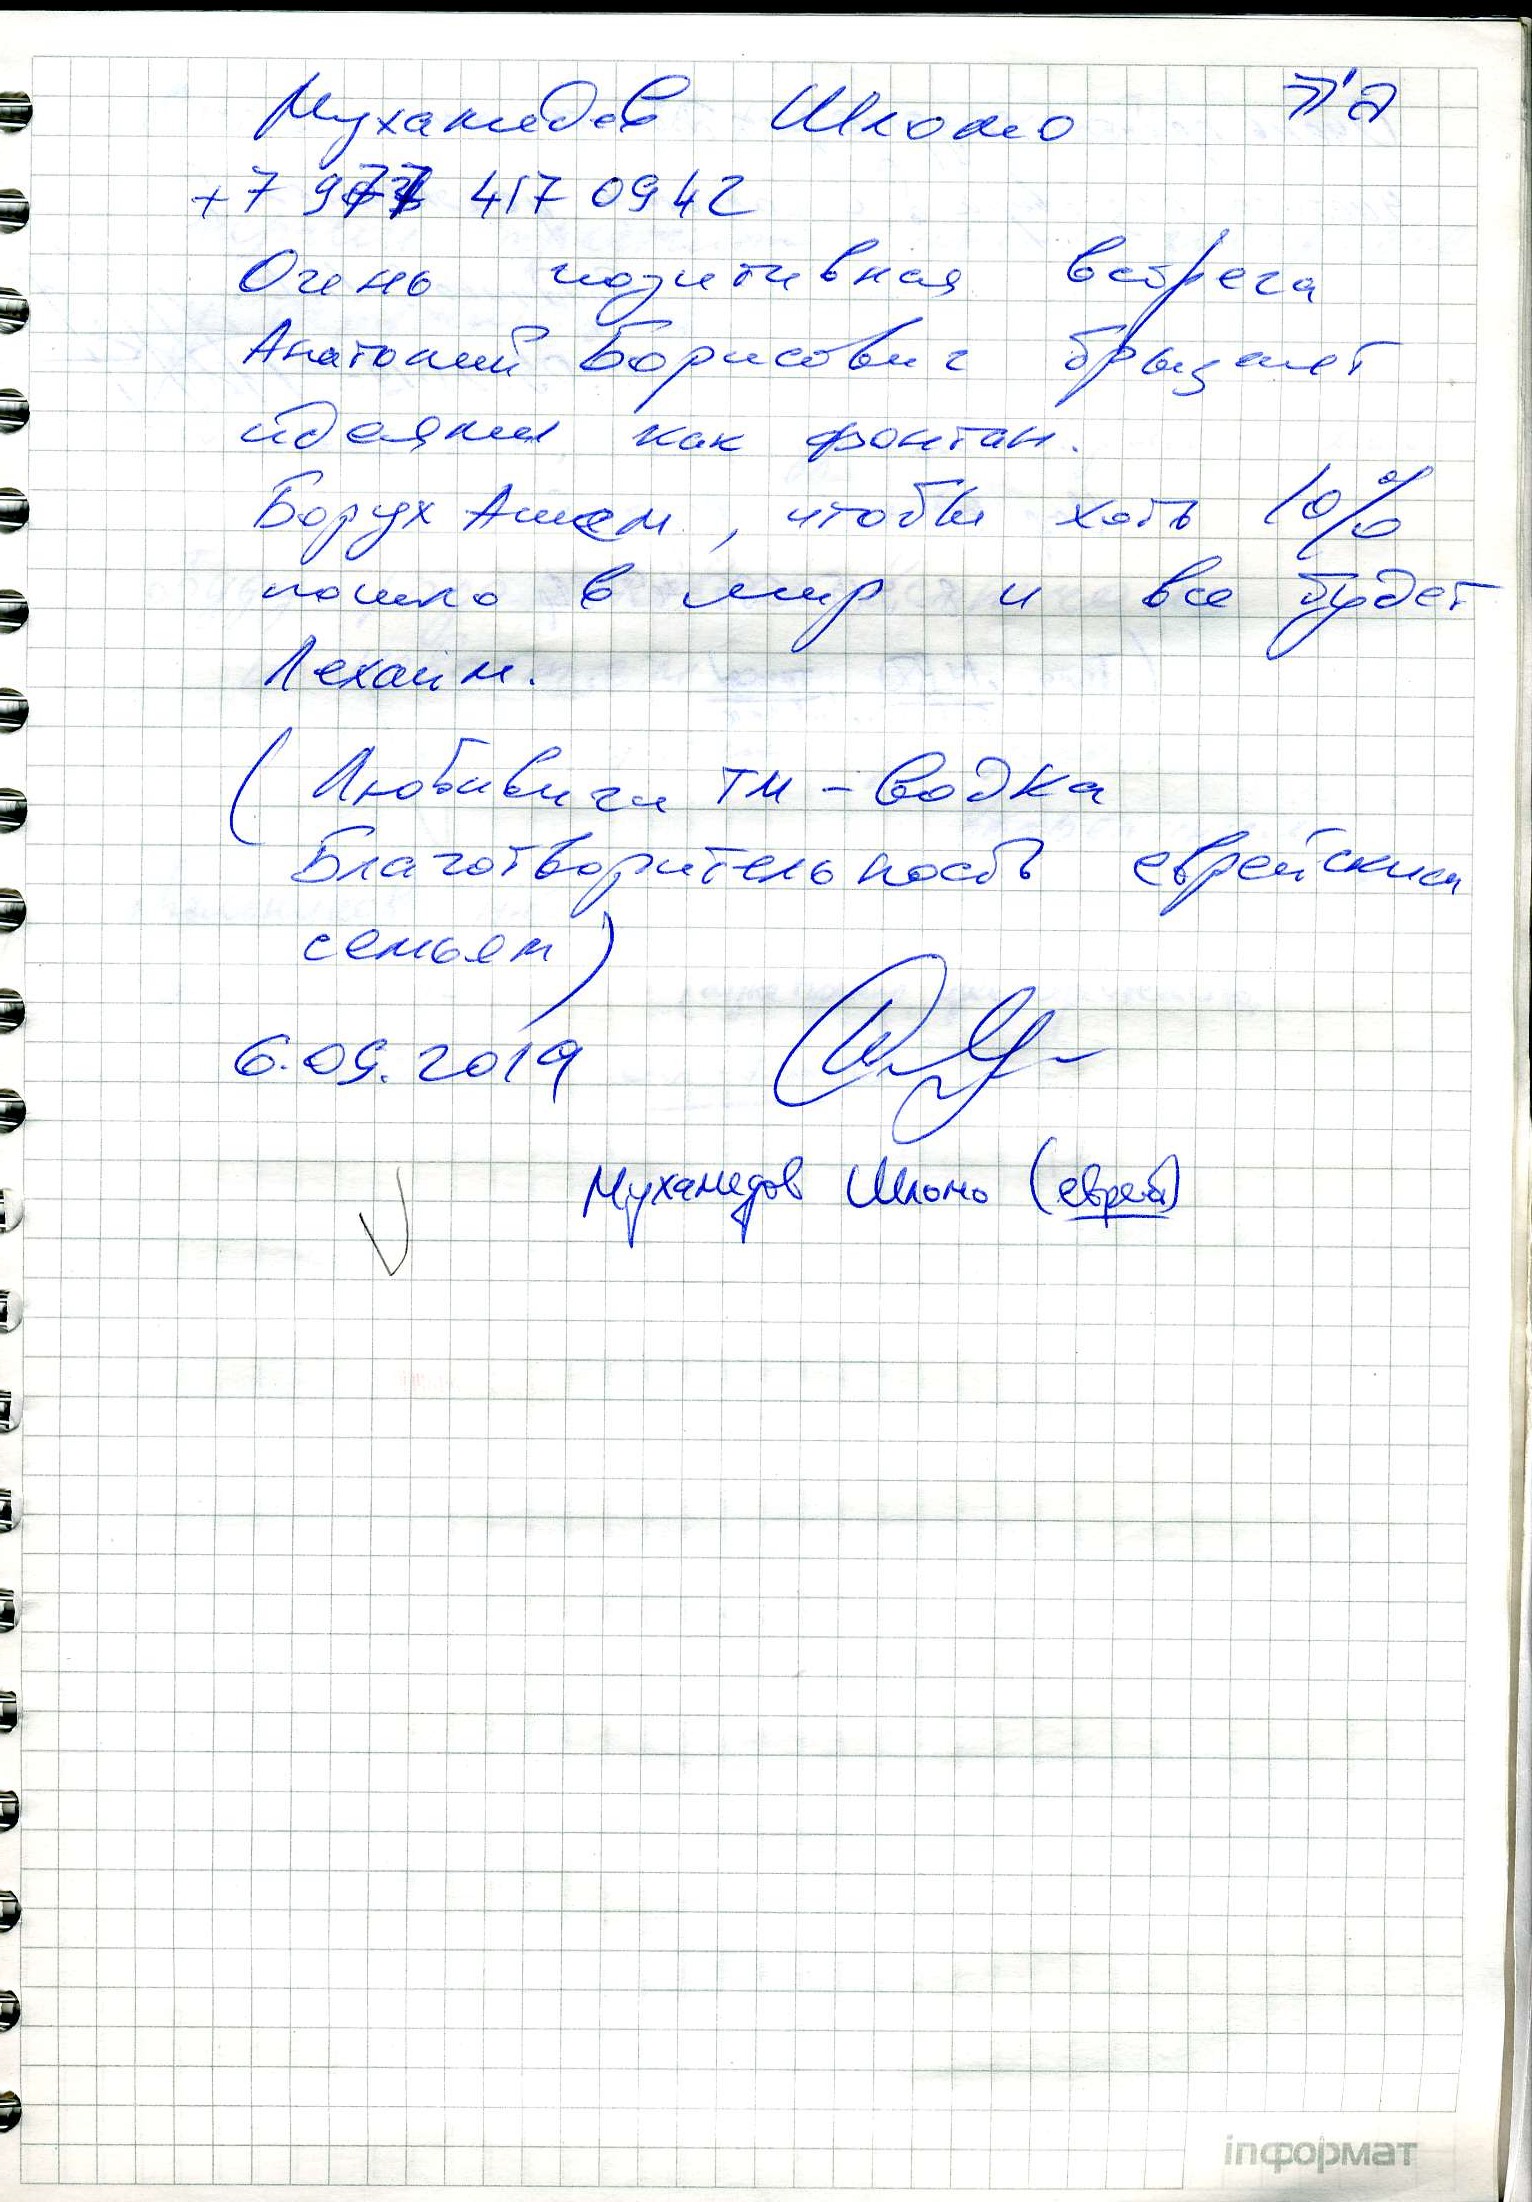 Мухамедов Шломо ב"ה
+7 977 417 0942
Очень позитивная встреча
Анатолий Борисович брызжет
идеями как фонтан.
Борух Ашем, чтобы хоть 10%
пошло в мир и все будет
Лехаим.
(Любавичи ТМ - водка
Благотворительность еврейским
семьям)
6.09.2019
Мухамедов Шломо (еврей)
iнформат